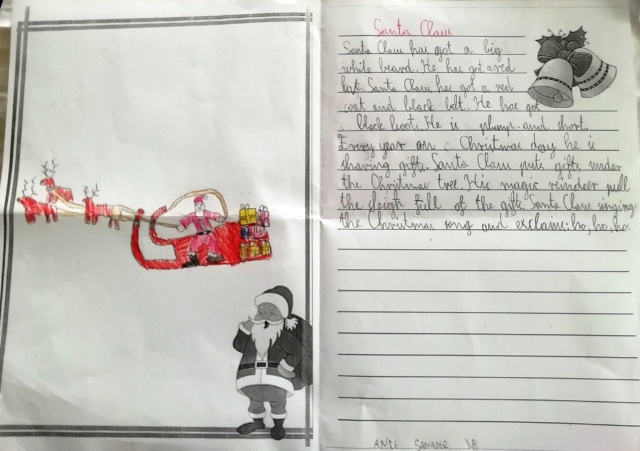 Santa Claus
Santa Claus has got a big
white beard. He has got a red
hat. Santa Claus has got a red
coat and black belt. He has got
black boots. He is plump and short.
Every year on Christmas day he is
sharing gifts. Santa Claus puts gifts under
the Christmas tree. His magic reindeer pull
the sleigh full of the gifts. Santa Claus singing
the Christmas song and exclaim: ho, ho, ho.
ANTE